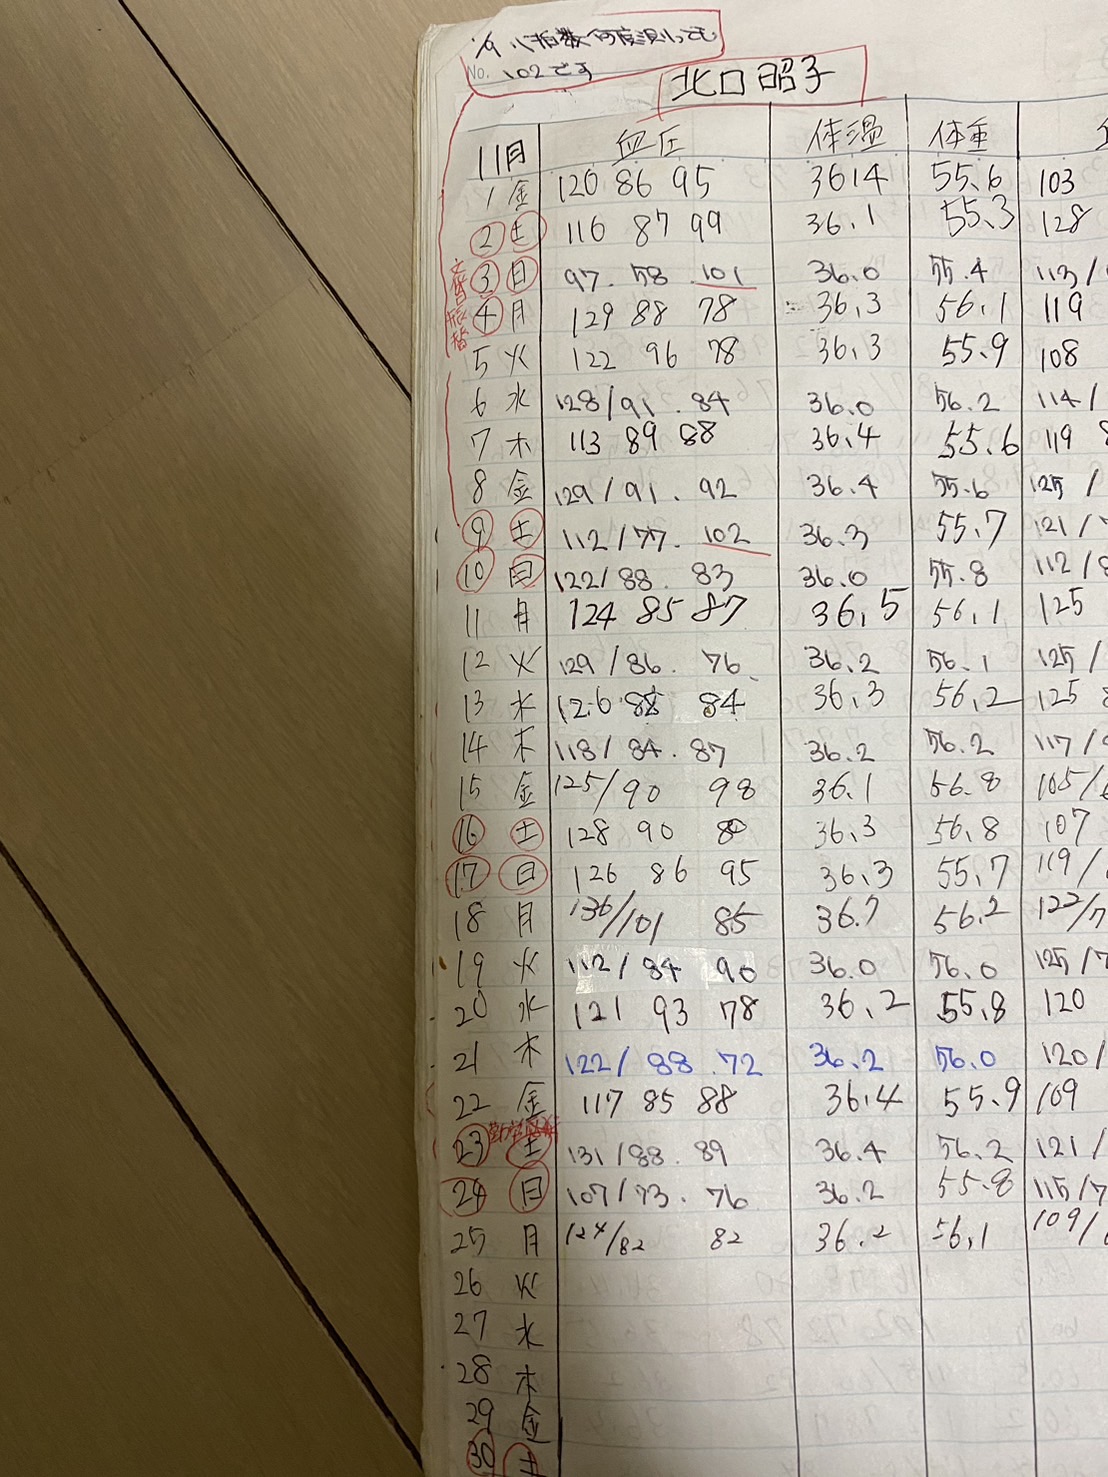 1/9 心拍数何度測っても
No. 102です
北口昭子
11月 血圧 体温 体重
1 金 120 86 95 36.4 55.6 103
2 土 116 87 99 36.1 55.3 128
3 日 97. 58 101 36.0 55.4 113/
文化の日 振替
4 月 129 88 78 36.3 56.1 119
5 火 122 96 78 36.3 55.9 108
6 水 128/91. 84 36.0 56.2 114/
7 木 113 89 88 36.4 55.6 119
8 金 129/91. 92 36.4 55.6 125/
9 土 112/77. 102 36.3 55.7 121/
10 日 122/88. 83 36.0 55.8 112/
11 月 124 85 87 36.5 56.1 125
12 火 129/86. 76 36.2 56.1 125/
13 水 126 88 84 36.3 56.2 125
14 木 118/84. 87 36.2 56.2 117/
15 金 125/90 98 36.1 56.8 105/
16 土 128 90 80 36.3 56.8 107
17 日 126 86 95 36.3 55.7 119/
18 月 136/101 85 36.7 56.2 122/7
19 火 112/84 90 36.0 56.0 125/7
20 水 121 93 78 36.2 55.8 120
21 木 122/88.72 36.2 56.0 120/
22 金 117 85 88 36.4 55.9 109
23 土 131/88. 89 36.4 56.2 121/
24 日 107/73. 76 36.2 55.8 115/7
25 月 124/82 82 36.2 56.1 109/
26 火
27 水
28 木
29 金
30 土